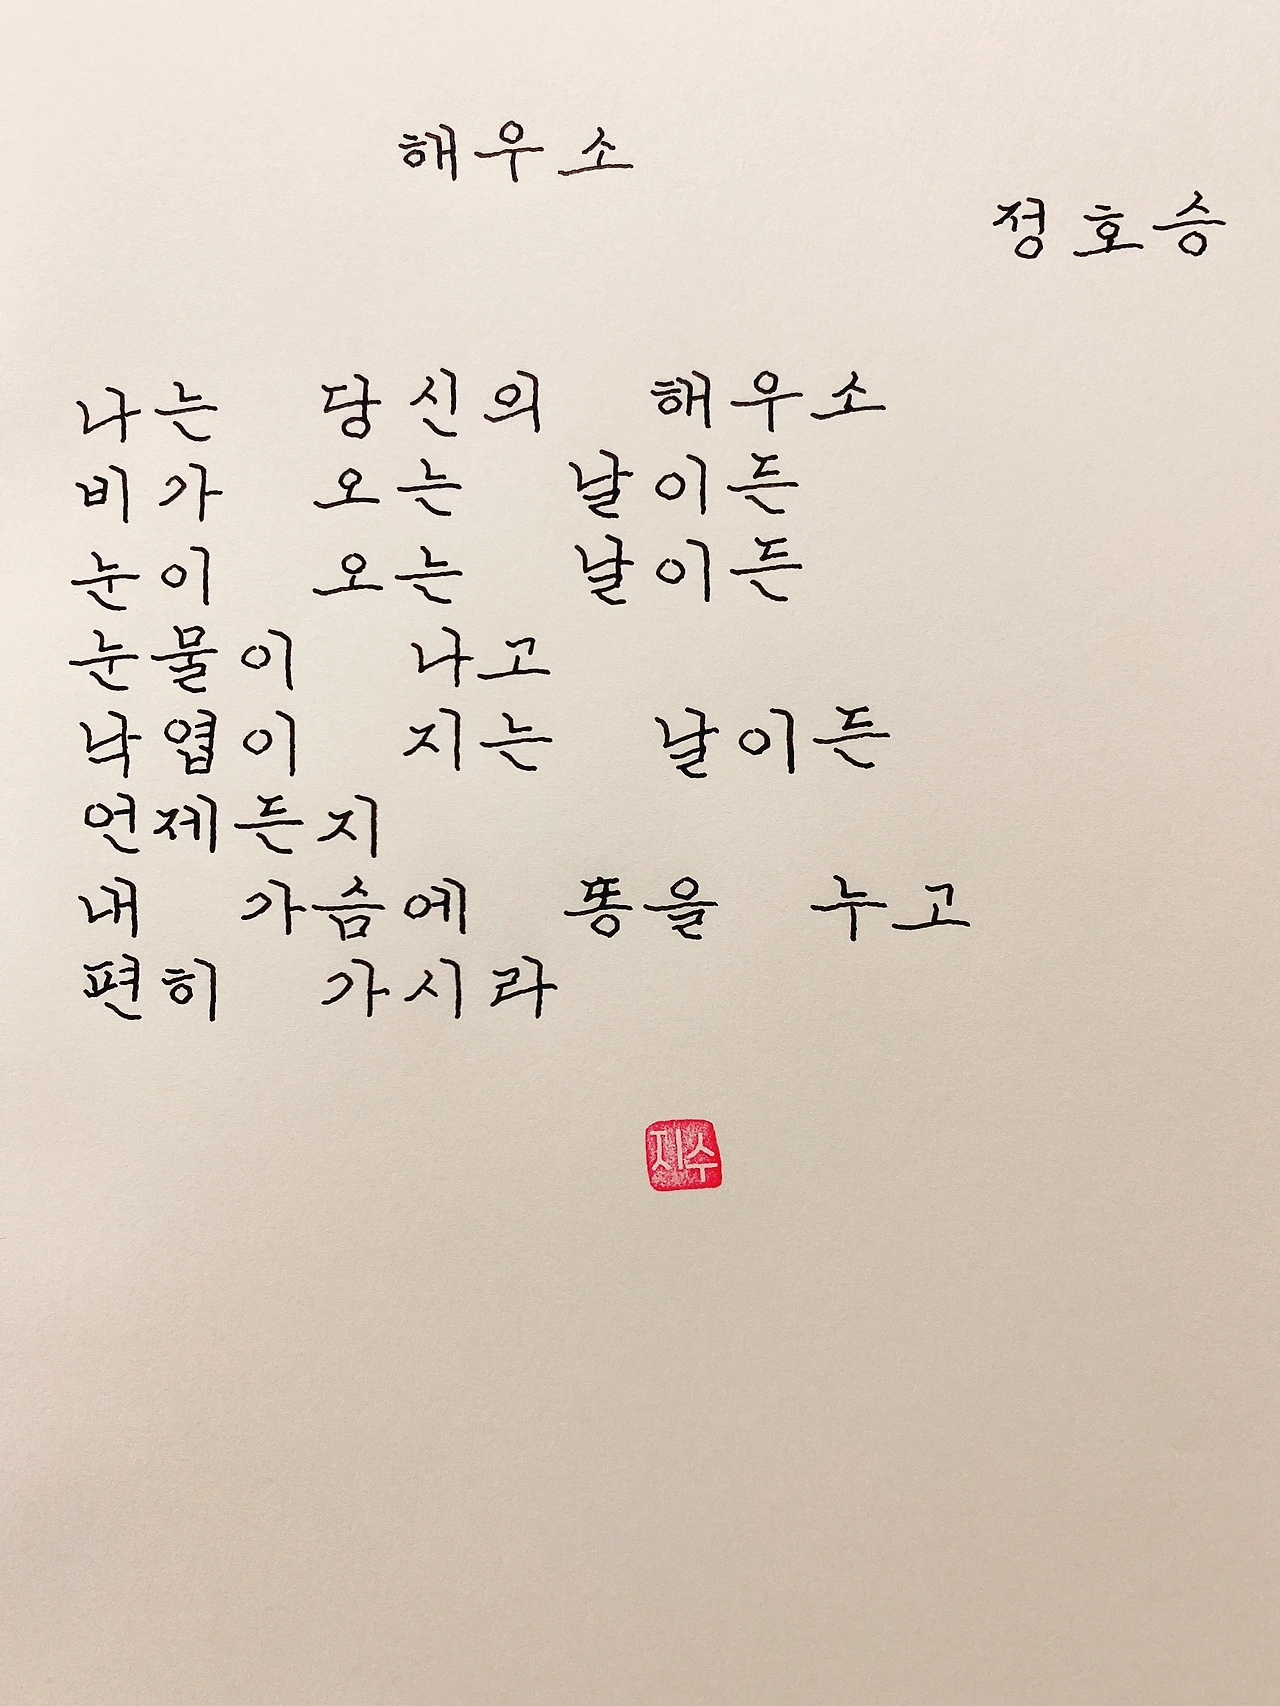 해우소
정호승
나는 당신의 해우소
비가 오는 날이든
눈이 오는 날이든
눈물이 나고
낙엽이 지는 날이든
언제든지
내 가슴에 똥을 누고
편히 가시라
지수